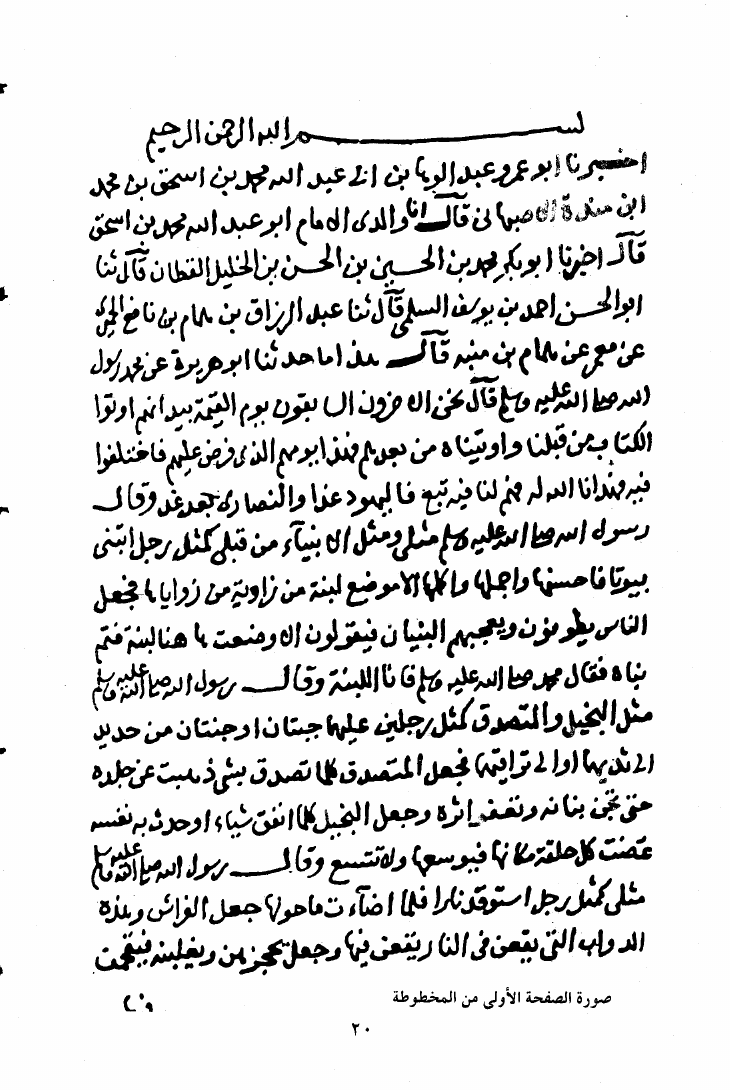 بسم الله الرحمن الرحيم
اخبرنا ابو عمرو عبد الوهاب بن ابى عبد الله محمد بن اسحق بن محمد
ابن مندة الاصبهانى قال انا والدى الامام ابو عبد الله محمد بن اسحق
قال اخبرنا ابو بكر محمد بن الحسين بن الحسن بن الخليل القطان قال ثنا
ابو الحسن احمد بن يوسف السلمى قال ثنا عبد الرزاق بن همام بن نافع الحميرى
عن معمر عن همام بن منبه قال هذا ما حدثنا ابو هريرة عن محمد رسول
الله صلى الله عليه وسلم قال نحن الاخرون السابقون يوم القيمة بيد انهم اوتوا
الكتاب من قبلنا واوتيناه من بعدهم فهذا يومهم الذى فرض عليهم فاختلفوا
فيه فهدانا الله له فهم لنا فيه تبع فاليهود غدا والنصارى بعد غد وقال
رسول الله صلى الله عليه وسلم مثلى ومثل الانبيآء من قبلى كمثل رجل ابتنى
بيوتا فاحسنها واجملها واكملها الا موضع لبنة من زاوية من زواياها فجعل
الناس يطوفون ويعجبهم البنيان فيقولون الا وضعت هاهنا لبنة فتم
بناه فقال محمد صلى الله عليه وسلم فانا اللبنة وقال رسول الله صلى الله عليه وسلم
مثل البخيل والمتصدق كمثل رجلين عليهما جبتان او جنتان من حديد
الى ثدييهما او الى تراقيهما فجعل المتصدق كلما تصدق بشى ذهبت عن جلده
حتى تجن بنانه وتعفو اثره وجعل البخيل كلما انفق شياء او حدث به نفسه
عضت كل حلقة مكانها فيوسعها ولا تتسع وقال رسول الله صلى الله عليه وسلم
مثلى كمثل رجل استوقد نارا فلما اضآءت ما حولها جعل الفراش وهذه
الدواب التى يقعن فى النار يقعن فيها وجعل يحجزهن ويغلبنه فيتقحمن
صورة الصفحة الأولى من المخطوطة
٢٠